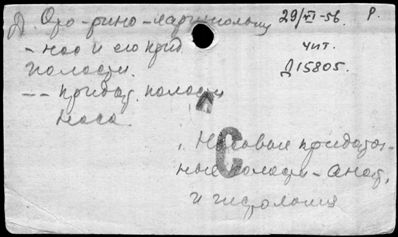 Д. Ото-рино-ларинголог. 29/XI-56. Р.
- нос и его прид.
полости.
чит.
Д15805.
-- придат. полости
носа
С
. Носовые придаточ-
ные полости - Анат.
и гистология